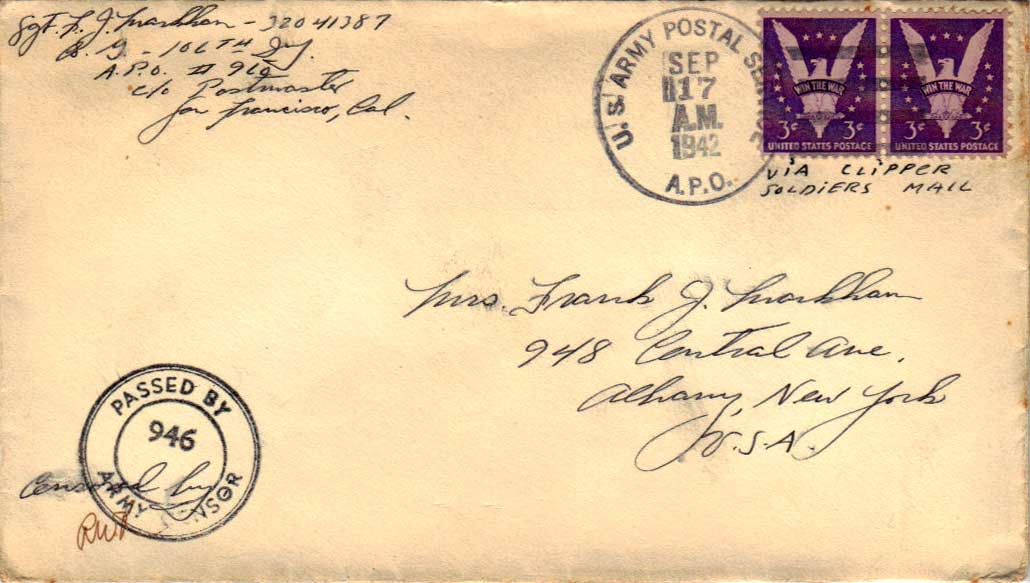 Sgt. F. J. Markham - 32041387
Co. G. - 106TH Inf.
A.P.O. # 960
c/o Postmaster
San Francisco, Cal.
U.S. ARMY POSTAL SERVICE
SEP
17
A.M.
1942
A.P.O.
WIN THE WAR
3¢ 3¢
UNITED STATES POSTAGE
WIN THE WAR
3¢ 3¢
UNITED STATES POSTAGE
VIA CLIPPER
SOLDIERS MAIL
Mrs. Frank J. Markham
948 Central Ave.
Albany, New York
U.S.A.
PASSED BY
946
ARMY CENSOR
Censored by